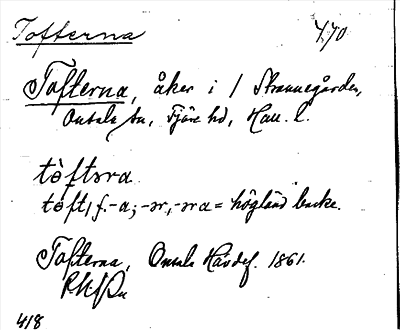 Tofterna 470
Tofterna, åker i 1 Strannegården,
Onsala sn, Fjäre hd, Hall. l.
tòftəra
tòft, f. -a; -ər, -əra = högländ backe.
Tofterna, Onsala Havdef. 1861.
418